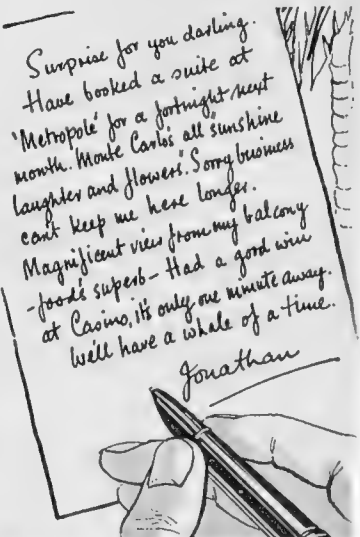 Surprise for you darling.
Have booked a suite at
'Metropole' for a fortnight next
month. Monte Carlo's all "sunshine
laughter and flowers". Sorry business
can't keep me here longer.
Magnificent view from my balcony
- food's superb - Had a good win
at Casino, it's only one minute away.
We'll have a whale of a time.
Jonathan